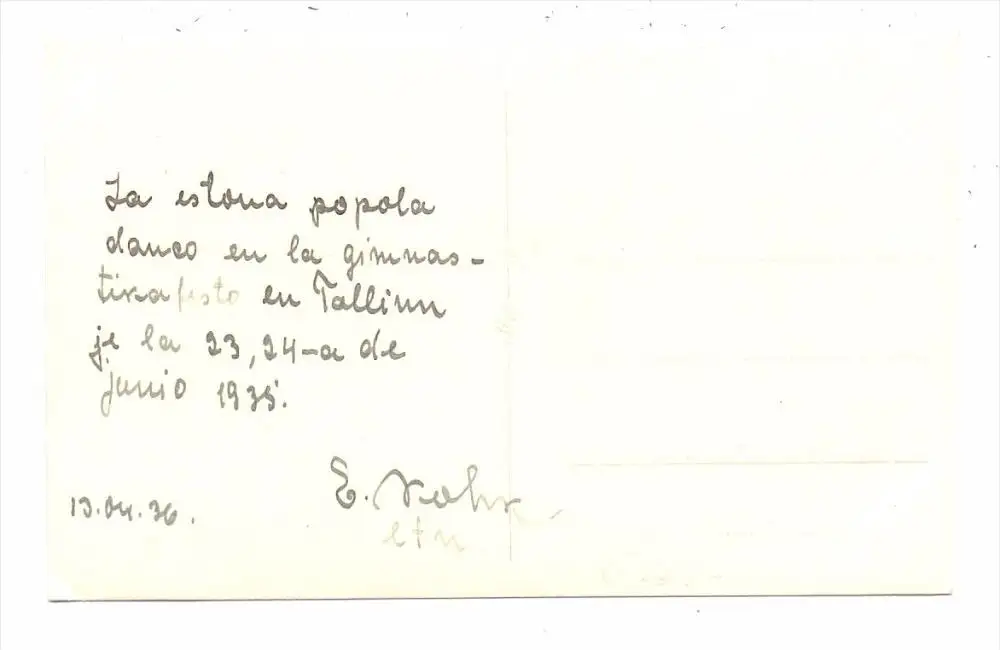 La estona popola
danco en la gimnas-
tika festo en Tallinn
je la 23, 24-a de
junio 1935.
E.
13.04.36.